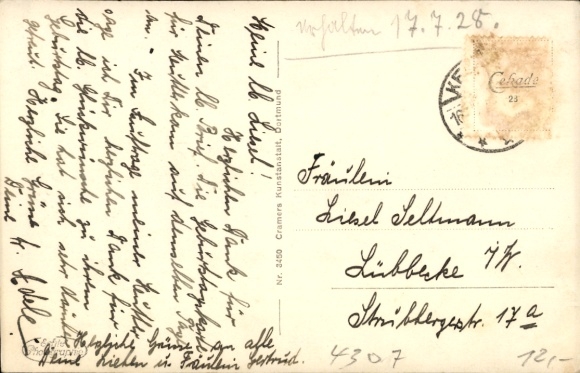 Meine lb. Liesel!
Herzlichen Dank für
Deinen lb. Brief. Die Geburtstagskarte
für Mutti kam auf denselben Tage
an. Im Auftrage meiner Mutter
sage ich Dir herzlichen Dank für
die lb. Glückwünsche zu ihrem
Geburtstag. Sie hat sich sehr darüber
gefreut. Herzliche Grüße
Deine
Herzliche Grüße an alle
Deine Lieben u. Fräulein Gertrud.
Nr. 3450 Cramers Kunstanstalt, Dortmund
erhalten 17.7.28.
Cehade
23
Fräulein
Liesel Seltmann
Lübbecke i/W.
Strubbergestr. 17a
4307
12,-
Echte
Photographie